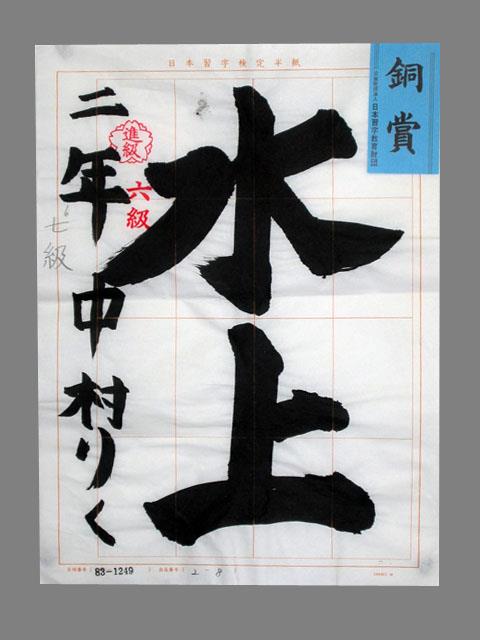 日本習字検定半紙
銅賞
公益財団法人 日本習字教育財団
水上
進級
六級
二年中村りく
七級
83-1249
2-8